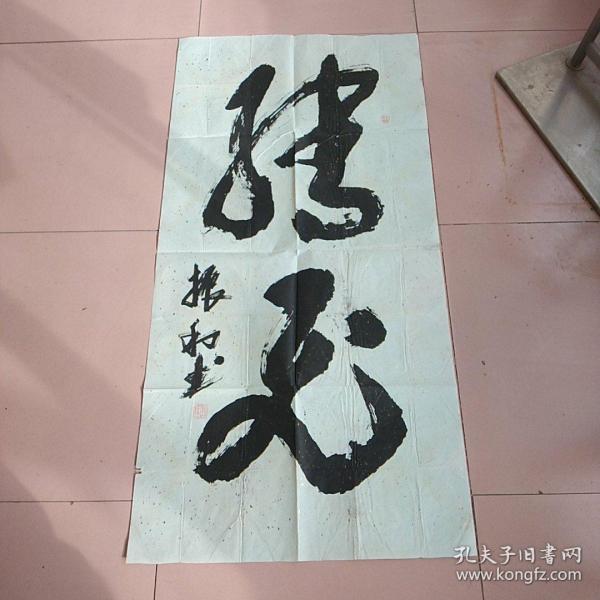 腾飞
振和书
孔夫子旧书网
www.kongfz.com